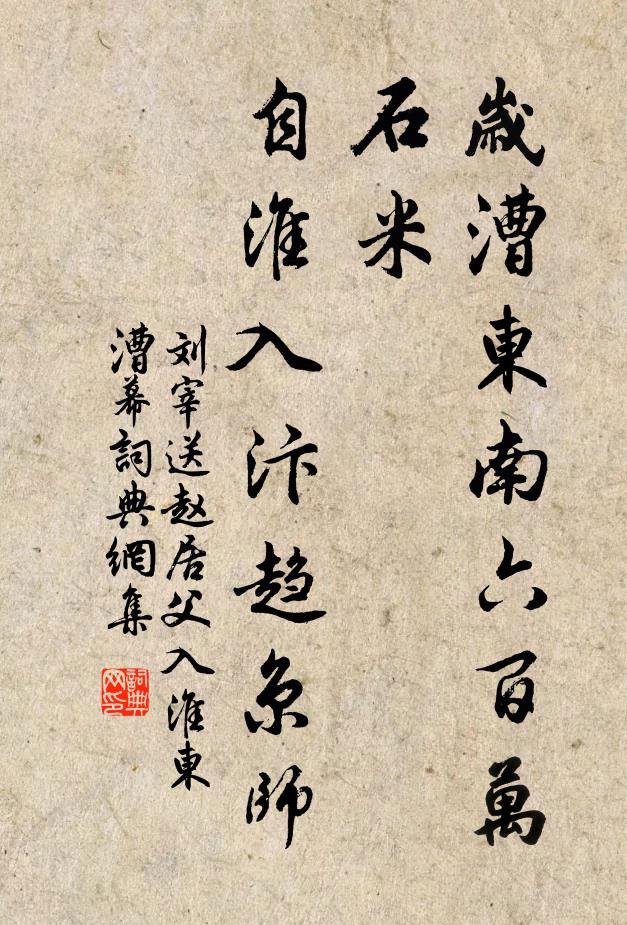 歲漕東南六百萬
石米
自淮入汴趨京師
刘宰送赵居父入淮東
漕幕詞典網集
詞典
网印